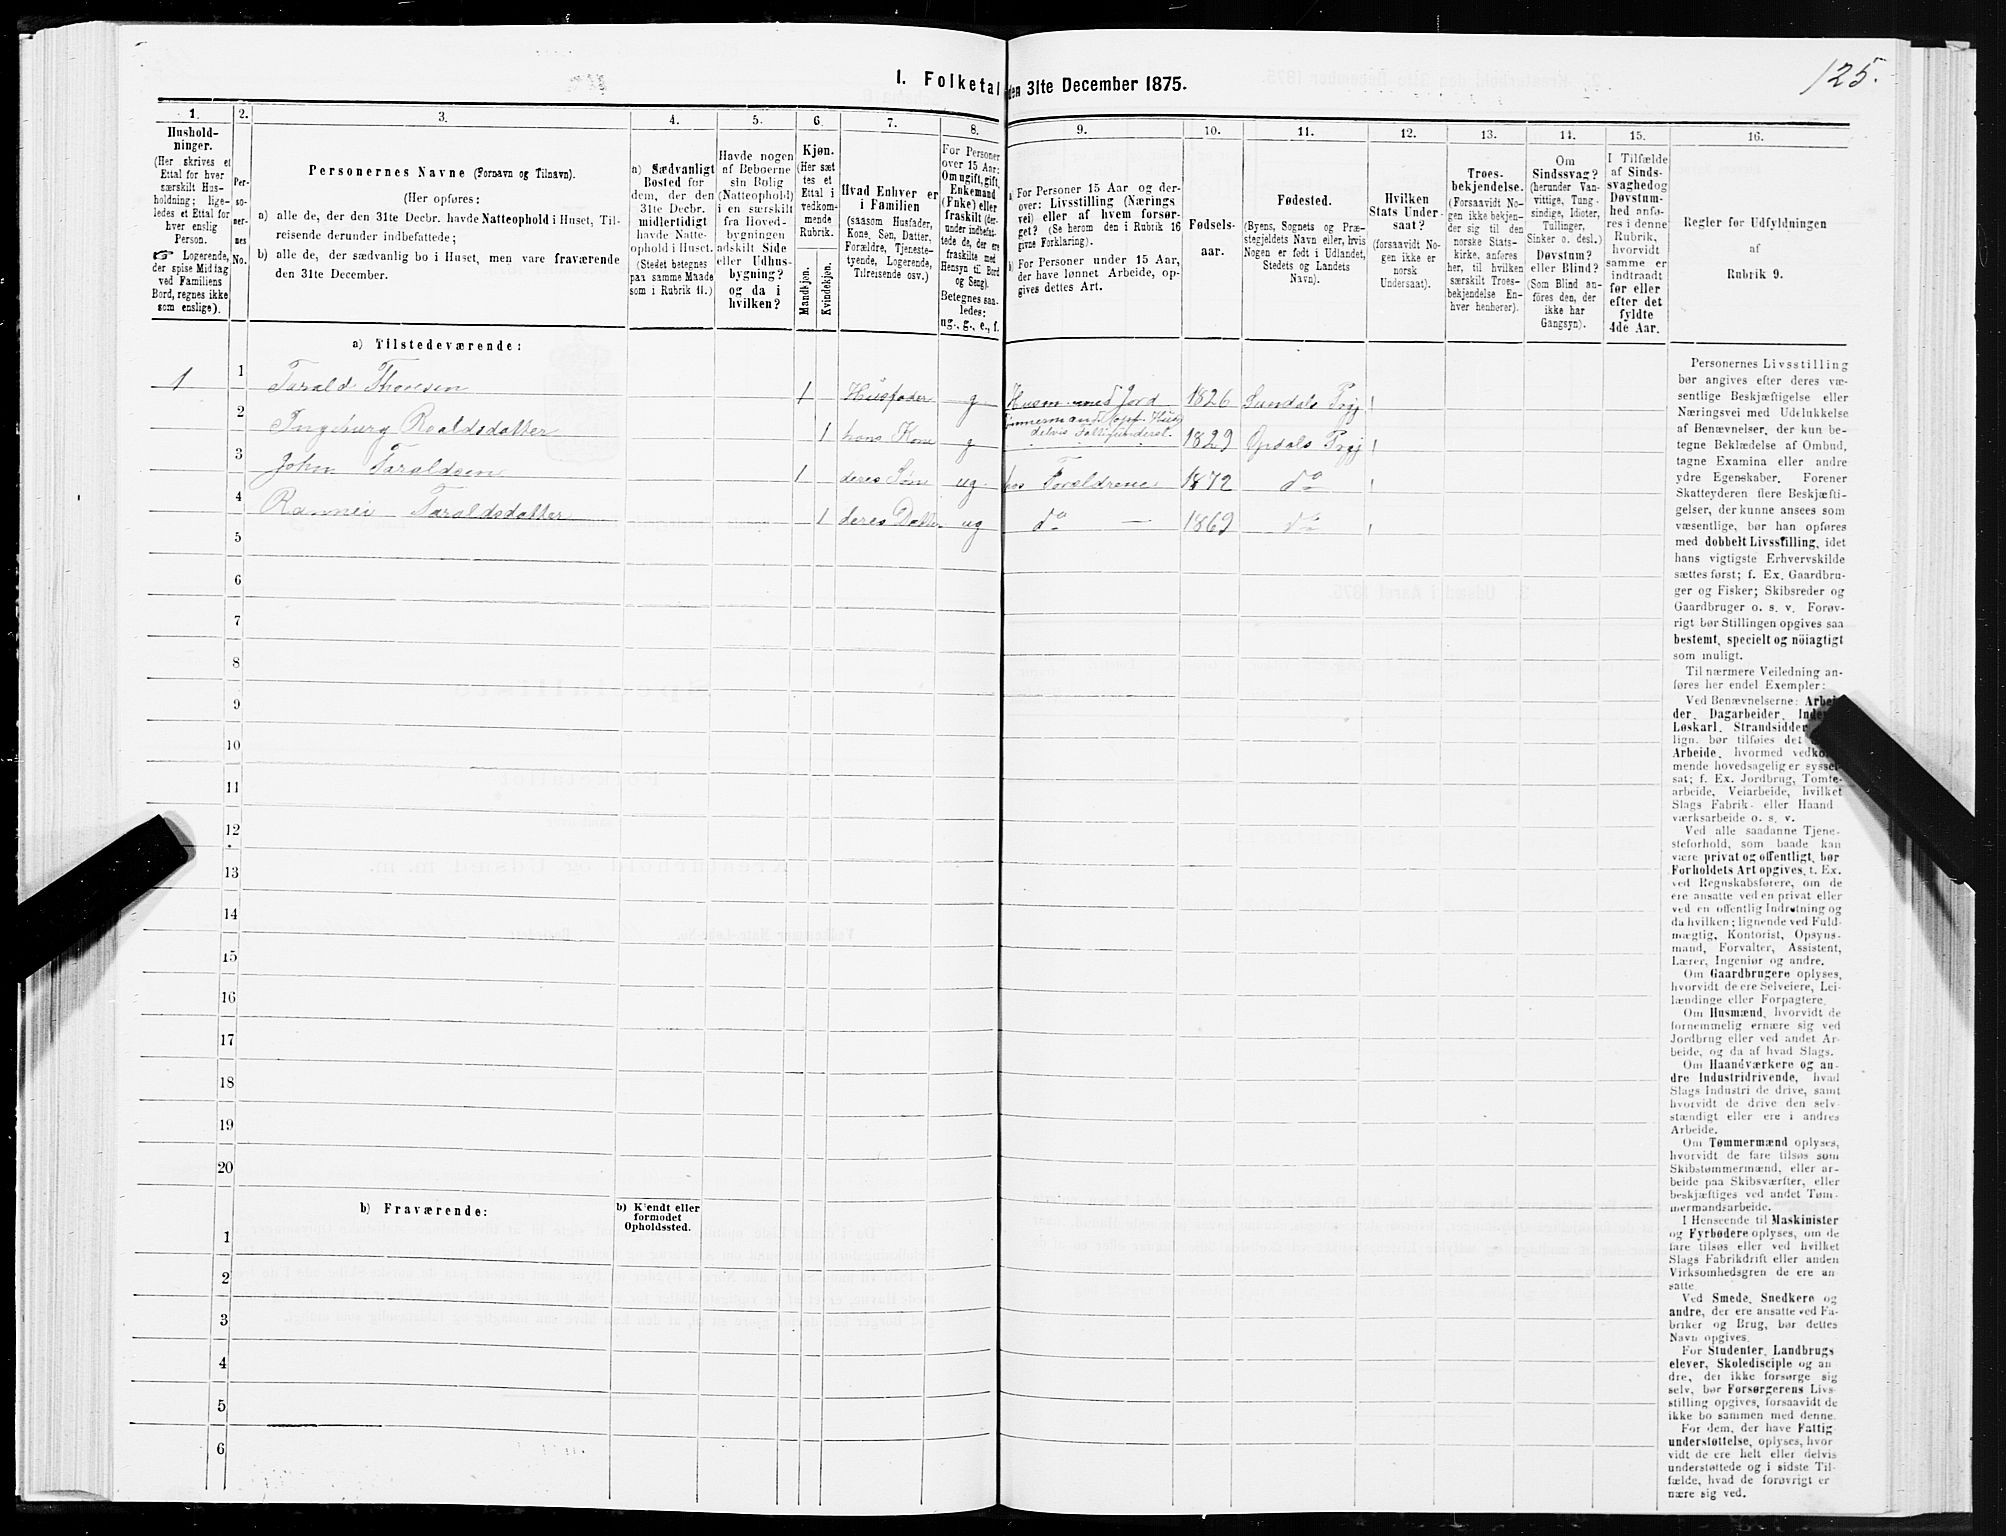 125.
1. Folketal den 31te December 1875.
1.
Hushold-
ninger.
(Her skrives et
Ettal for hver
særskilt Hus-
holdning; lige-
ledes et Ettal for
hver enslig
Person.
☞ Logerende,
der spise Middag
ved Familiens
Bord, regnes ikke
som enslige).
2.
Per-
so-
ner-
nes
No.
3.
Personernes Navne (Fornavn og Tilnavn).
(Her opføres:
a) alle de, der den 31te Decbr. havde Natteophold i Huset, Til-
reisende derunder indbefattede;
b) alle de, der sædvanlig bo i Huset, men vare fraværende
den 31te December.
4.
a) Sædvanligt
Bosted for
dem, der den
31te Decbr.
midlertidigt
havde Natte-
ophold i Huset.
(Stedet betegnes
paa samme Maade
som i Rubrik 11.)
5.
Havde nogen
af Beboerne
sin Bolig
(Natteophold)
i en særskilt
fra Hoved-
bygningen
adskilt Side
eller Udhus-
bygning?
og da i
hvilken?
6.
Kjøn.
(Her sæt
tes et
Ettal i
vedkom-
mende
Rubrik.
Mandkjøn.
Kvindekjøn.
7.
Hvad Enhver er
i Familien
(saasom Husfader,
Kone, Søn, Datter,
Forældre, Tjeneste-
tyende, Logerende,
Tilreisende osv.)
8.
For Personer
over 15 Aar:
Om ugift, gift,
Enkemand
(Enke) eller
fraskilt (der-
under indbefat-
tede de, der ere
fraskilte med
Hensyn til Bord
og Seng).
Betegnes saa-
ledes:
ug., g., e., f.
9.
a) For Personer 15 Aar og der-
over: Livsstilling (Nærings
vei) eller af hvem forsør-
get? (Se herom den i Rubrik 16
givne Forklaring).
b) For Personer under 15 Aar,
der have lønnet Arbeide, op-
gives dettes Art.
10.
Fødsels-
aar.
11.
Fødested.
(Byens, Sognets og Præ-
stegjeldets Navn eller, hvis
Nogen er født i Udlandet,
Stedets og Landets
Navn).
12.
Hvilken
Stats Under-
saat?
(forsaavidt No-
gen ikke er
norsk
Undersaat).
13.
Troes-
bekjendelse.
(Forsaavidt No-
gen ikke bekjen-
der sig til den
norske Stats-
kirke, anføres
her, til hvilken
særskilt Troes-
bekjendelse En-
hver henhører).
14.
Om
Sindssvag?
(herunder Van-
vittige, Tung-
sindige, Idioter,
Tullinger,
Sinker o. desl.)
Døvstum?
eller Blind?
(Som Blind an-
føres den, der
ikke har
Gangsyn).
15.
I Tilfælde
af Sinds-
svaghed og
Døvstum-
hed anfø-
res i denne
Rubrik,
hvorvidt
samme er
indtraadt
før eller
efter det
fyldte
4de Aar.
16.
Regler for Udfyldningen
af
Rubrik 9.
a) Tilstedeværende:
1 1 Tarald Thoresen 1 Husfader g Husm. med Jord 1826 Sundals Prgj
Tømmermand
delvis Fattigunderst.
2 Ingeburg Roaldsdatter 1 hans Kone g 1829 Opdals Prgj
3 John Taraldsen 1 deres Søn ug hos Forældrene 1872 do
4 Rannei Taraldsdatter 1 deres Datter ug do — 1869 do
5
6
7
8
9
10
11
12
13
14
15
16
17
18
19
20
b) Fraværende:
b) Kjendt eller
formodet
Opholdssted.
1
2
3
4
5
6
Personernes Livsstilling
bør angives efter deres væ-
sentlige Beskjæftigelse eller
Næringsvei med Udelukkelse
af Benævnelser, der kun be-
tegne Beklædelse af Ombud,
tagne Examina eller andre
ydre Egenskaber. Forener
Skatteyderen flere Beskjæfti-
gelser, der kunne ansees som
væsentlige, bør han opføres
med dobbelt Livsstilling, idet
hans vigtigste Erhvervskilde
sættes først; f. Ex. Gaardbru-
ger og Fisker; Skibsreder og
Gaardbruger o. s. v. Forøv-
rigt bør Stillingen opgives saa
bestemt, specielt og nöiagtigt
som muligt.
Til nærmere Veiledning an-
føres her endel Exempler:
Ved Benævnelserne: Arbei-
der, Dagarbeider, Inder
Løskarl, Strandsidder
lign. bør tilføies det
Arbeide, hvormed vedkom-
mende hovedsagelig er syssel-
sat; f. Ex. Jordbrug, Tomte-
arbeide, Veiarbeide, hvilket
Slags Fabrik- eller Haand
værksarbeide o. s. v.
Ved alle saadanne Tjene-
steforhold, som baade kan
være privat og offentligt, bør
Forholdets Art opgives, f. Ex.
ved Regnskabsførere, om de
ere ansatte ved en privat eller
ved en offentlig Indretning og
da hvilken; lignende ved Fuld-
mægtig, Kontorist, Opsyns-
mand, Forvalter, Assistent,
Lærer, Ingeniør og andre.
Om Gaardbrugere oplyses,
hvorvidt de ere Selveiere, Lei-
lændinge eller Forpagtere.
Om Husmænd, hvorvidt de
fornemmelig ernære sig ved
Jordbrug eller ved andet Ar-
beide, og da af hvad Slags.
Om Haandværkere og an-
dre Industridrivende, hvad
Slags Industri de drive, samt
hvorvidt de drive den selv-
stændigt eller ere i andres
Arbeide.
Om Tømmermænd oplyses,
hvorvidt de fare tilsøs som
Skibstømmermænd, eller ar-
beide paa Skibsværfter, eller
beskjæftiges ved andet Tøm-
mermandsarbeide.
I Henseende til Maskinister
og Fyrbødere oplyses, om de
fare tilsøs eller ved hvilket
Slags Fabrikdrift eller anden
Virksomhedsgren de ere an-
satte
Ved Smede, Snedkere og
andre, der ere ansatte ved Fa-
briker og Brug, bør dettes
Navn opgives.
For Studenter, Landbrugs
elever, Skoledisciple og an
dre, der ikke forsørge sig
selv, bør Forsørgerens Livs-
stilling opgives, forsaavidt de
ikke bo sammen med denne.
For dem, der have Fattig-
understøttelse, oplyses, hvor
vidt de ere helt eller delvis
understøttede og i sidste Til-
fælde, hvad de forøvrigt er
nære sig ved.